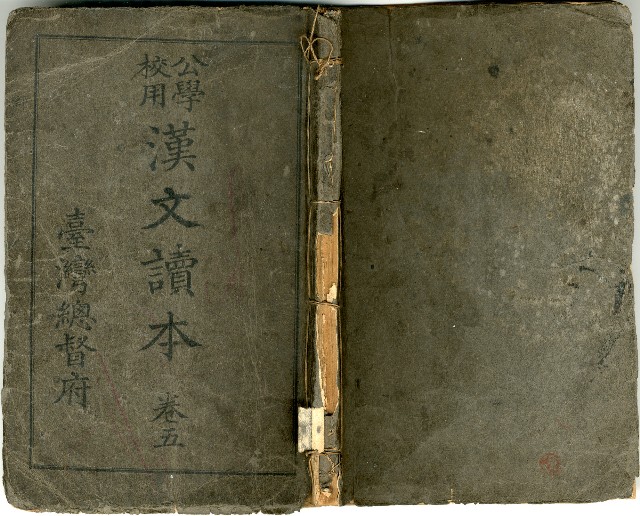 公學校用
漢文讀本 卷五
臺灣總督府